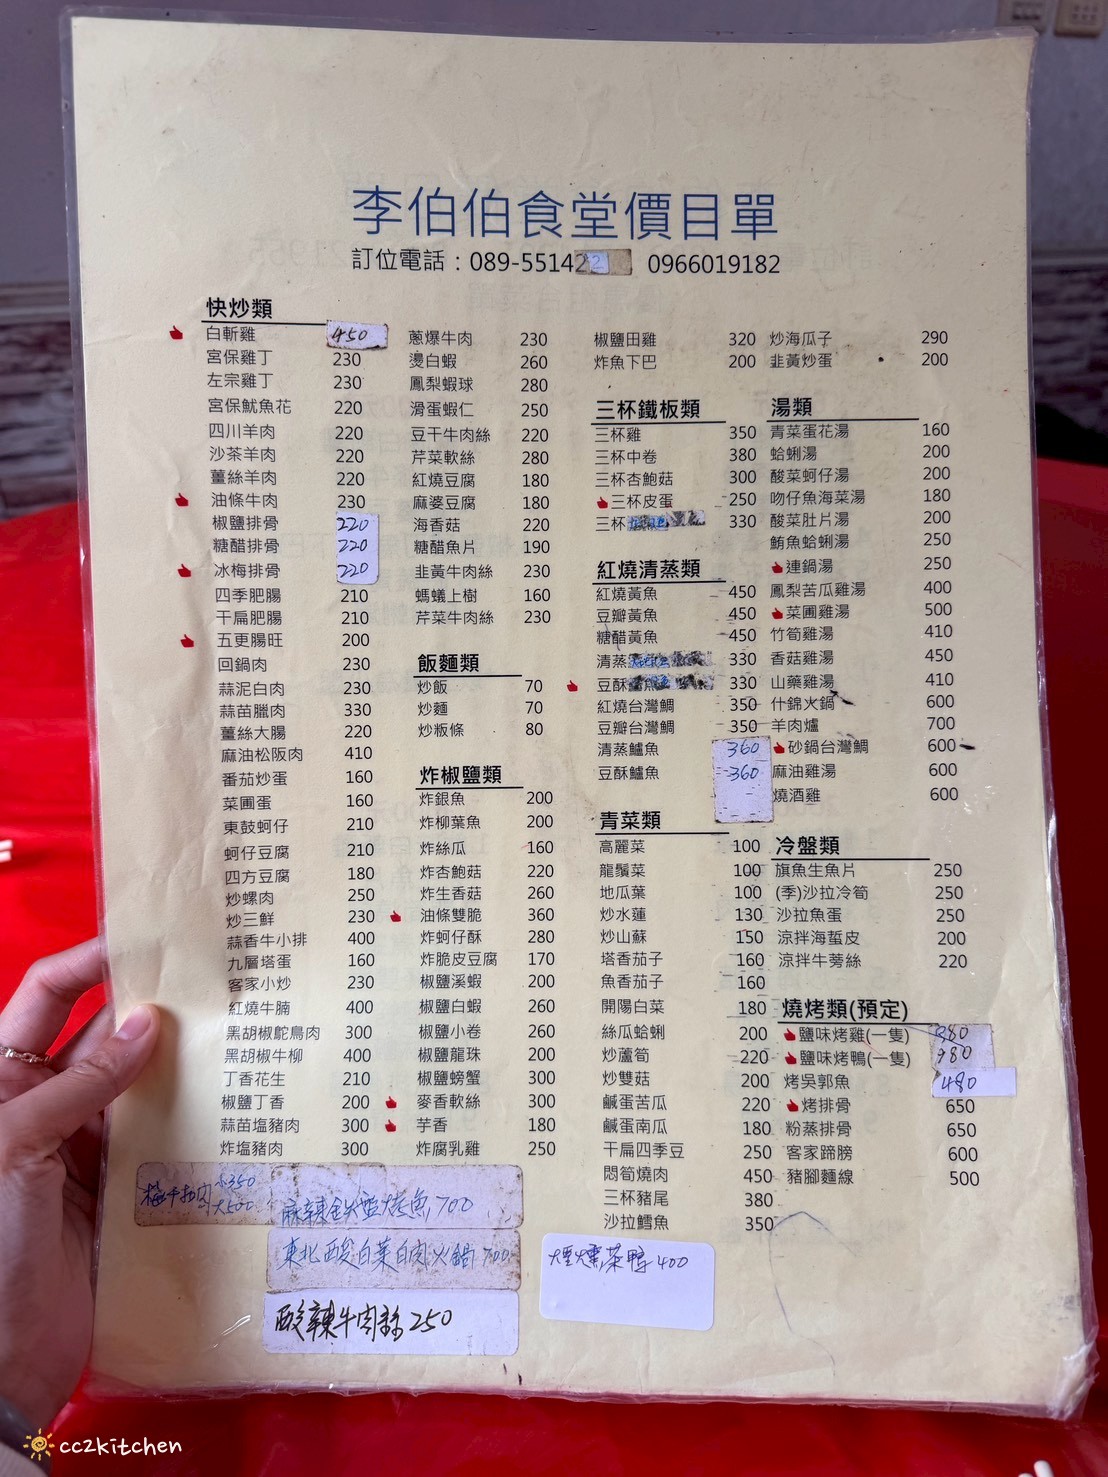 李伯伯食堂價目單
訂位電話：089-551422 0966019182
快炒類
白斬雞 450
宮保雞丁 230
左宗雞丁 230
宮保魷魚花 220
四川羊肉 220
沙茶羊肉 220
薑絲羊肉 220
油條牛肉 230
椒鹽排骨 220
糖醋排骨 220
冰梅排骨 220
四季肥腸 210
干扁肥腸 210
五更腸旺 200
回鍋肉 230
蒜泥白肉 230
蒜苗臘肉 330
薑絲大腸 220
麻油松阪肉 410
番茄炒蛋 160
菜圃蛋 160
東鼓蚵仔 210
蚵仔豆腐 210
四方豆腐 180
炒螺肉 250
炒三鮮 230
蒜香牛小排 400
九層塔蛋 160
客家小炒 230
紅燒牛腩 400
黑胡椒鴕鳥肉 300
黑胡椒牛柳 400
丁香花生 210
椒鹽丁香 200
蒜苗塩豬肉 300
炸塩豬肉 300
蔥爆牛肉 230
燙白蝦 260
鳳梨蝦球 280
滑蛋蝦仁 250
豆干牛肉絲 220
芹菜軟絲 280
紅燒豆腐 180
麻婆豆腐 180
海香菇 220
糖醋魚片 190
韭黃牛肉絲 230
螞蟻上樹 160
芹菜牛肉絲 230
飯麵類
炒飯 70
炒麵 70
炒粄條 80
炸椒鹽類
炸銀魚 200
炸柳葉魚 200
炸絲瓜 160
炸杏鮑菇 220
炸生香菇 260
油條雙脆 360
炸蚵仔酥 280
炸脆皮豆腐 170
椒鹽溪蝦 200
椒鹽白蝦 260
椒鹽小卷 260
椒鹽龍珠 200
椒鹽螃蟹 300
麥香軟絲 300
芋香 180
炸腐乳雞 250
椒鹽田雞 320
炸魚下巴 200
三杯鐵板類
三杯雞 350
三杯中卷 380
三杯杏鮑菇 300
三杯皮蛋 250
三杯 330
紅燒清蒸類
紅燒黃魚 450
豆瓣黃魚 450
糖醋黃魚 450
清蒸 330
豆酥 330
紅燒台灣鯛 350
豆瓣台灣鯛 350
清蒸鱸魚 360
豆酥鱸魚 360
青菜類
高麗菜 100
龍鬚菜 100
地瓜葉 100
炒水蓮 130
炒山蘇 150
塔香茄子 160
魚香茄子 160
開陽白菜 180
絲瓜蛤蜊 200
炒蘆筍 220
炒雙菇 200
鹹蛋苦瓜 220
鹹蛋南瓜 180
干扁四季豆 250
悶筍燒肉 450
三杯豬尾 380
沙拉鱈魚 350
炒海瓜子 290
韭黃炒蛋 200
湯類
青菜蛋花湯 160
蛤蜊湯 200
酸菜蚵仔湯 200
吻仔魚海菜湯 180
酸菜肚片湯 200
鮪魚蛤蜊湯 250
連鍋湯 250
鳳梨苦瓜雞湯 400
菜圃雞湯 500
竹筍雞湯 410
香菇雞湯 450
山藥雞湯 410
什錦火鍋 600
羊肉爐 700
砂鍋台灣鯛 600
麻油雞湯 600
燒酒雞 600
冷盤類
旗魚生魚片 250
(季)沙拉冷筍 250
沙拉魚蛋 250
涼拌海蜇皮 200
涼拌牛蒡絲 220
燒烤類(預定)
鹽味烤雞(一隻) 980
鹽味烤鴨(一隻) 980
烤吳郭魚 480
烤排骨 650
粉蒸排骨 650
客家蹄膀 600
豬腳麵線 500
梅干扣肉 小350
大500
麻辣鐵盤烤魚 700
東北酸白菜白肉火鍋 700
酸辣牛肉絲 250
煙燻茶鴨 400
cc2kitchen